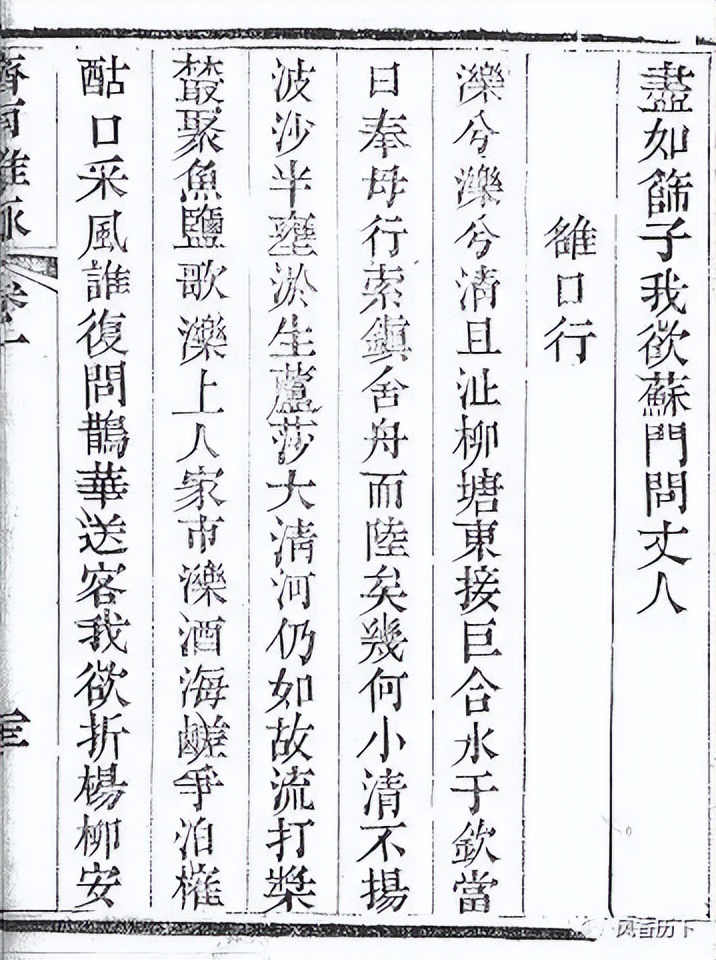 盡如篩子我欲蘇門問丈人
雒口行
濼兮濼兮清且沚柳塘東接巨合水于欽當
日奉母行索鎮舍舟而陸矣幾何小清不揚
波沙半壅淤生蘆莎大清河仍如故流打槳
聚魚鹽歌濼上人家市濼酒海鹺爭泊榷
酤口采風誰復問鵲華送客我欲折楊柳安
卷一
风言历下